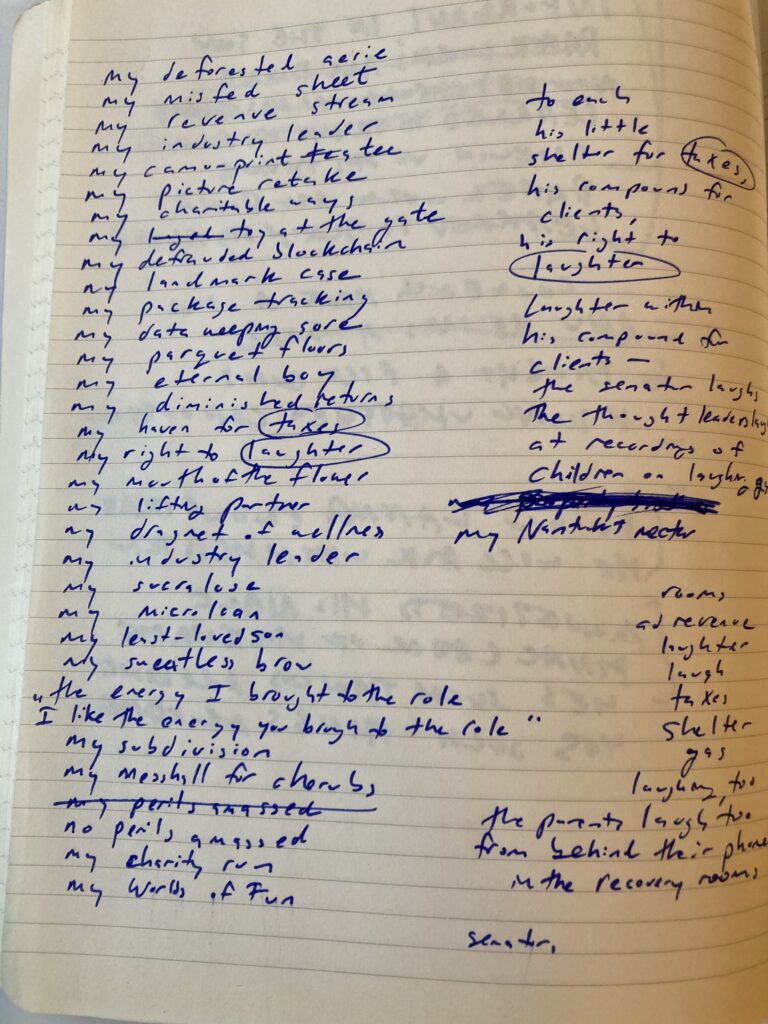 my deforested aerie
my misfed sheet
my revenue stream
my industry leader
my camo-print tea tee
my picture retake
my charitable ways
my toy at the gate
my defrauded blockchain
my landmark case
my package tracking
my data weeping sore
my parquet floors
my eternal boy
my diminished returns
my haven for taxes
my right to laughter
my mouth of the flower
my lifting partner
my dragnet of wellness
my industry leader
my sucralose
my microloan
my least-loved son
my sweatless brow
"the energy I brought to the role
I like the energy you brough to the role"
my subdivision
my messhall for cherubs
my perils amassed
no perils amassed
my charity run
my Worlds of Fun
to each
his little
shelter for taxes,
his compound for
clients,
his right to
laughter
Laughter within
his compound for
clients —
the senator laughs
the thought leaders laugh
at recordings of
children on laughing gas
my Nantucket nectar
rooms
ad revenue
laughter
laugh
taxes
shelter
gas
laughing, too
the parents laugh too
from behind their phones
in the recovery rooms
senator,